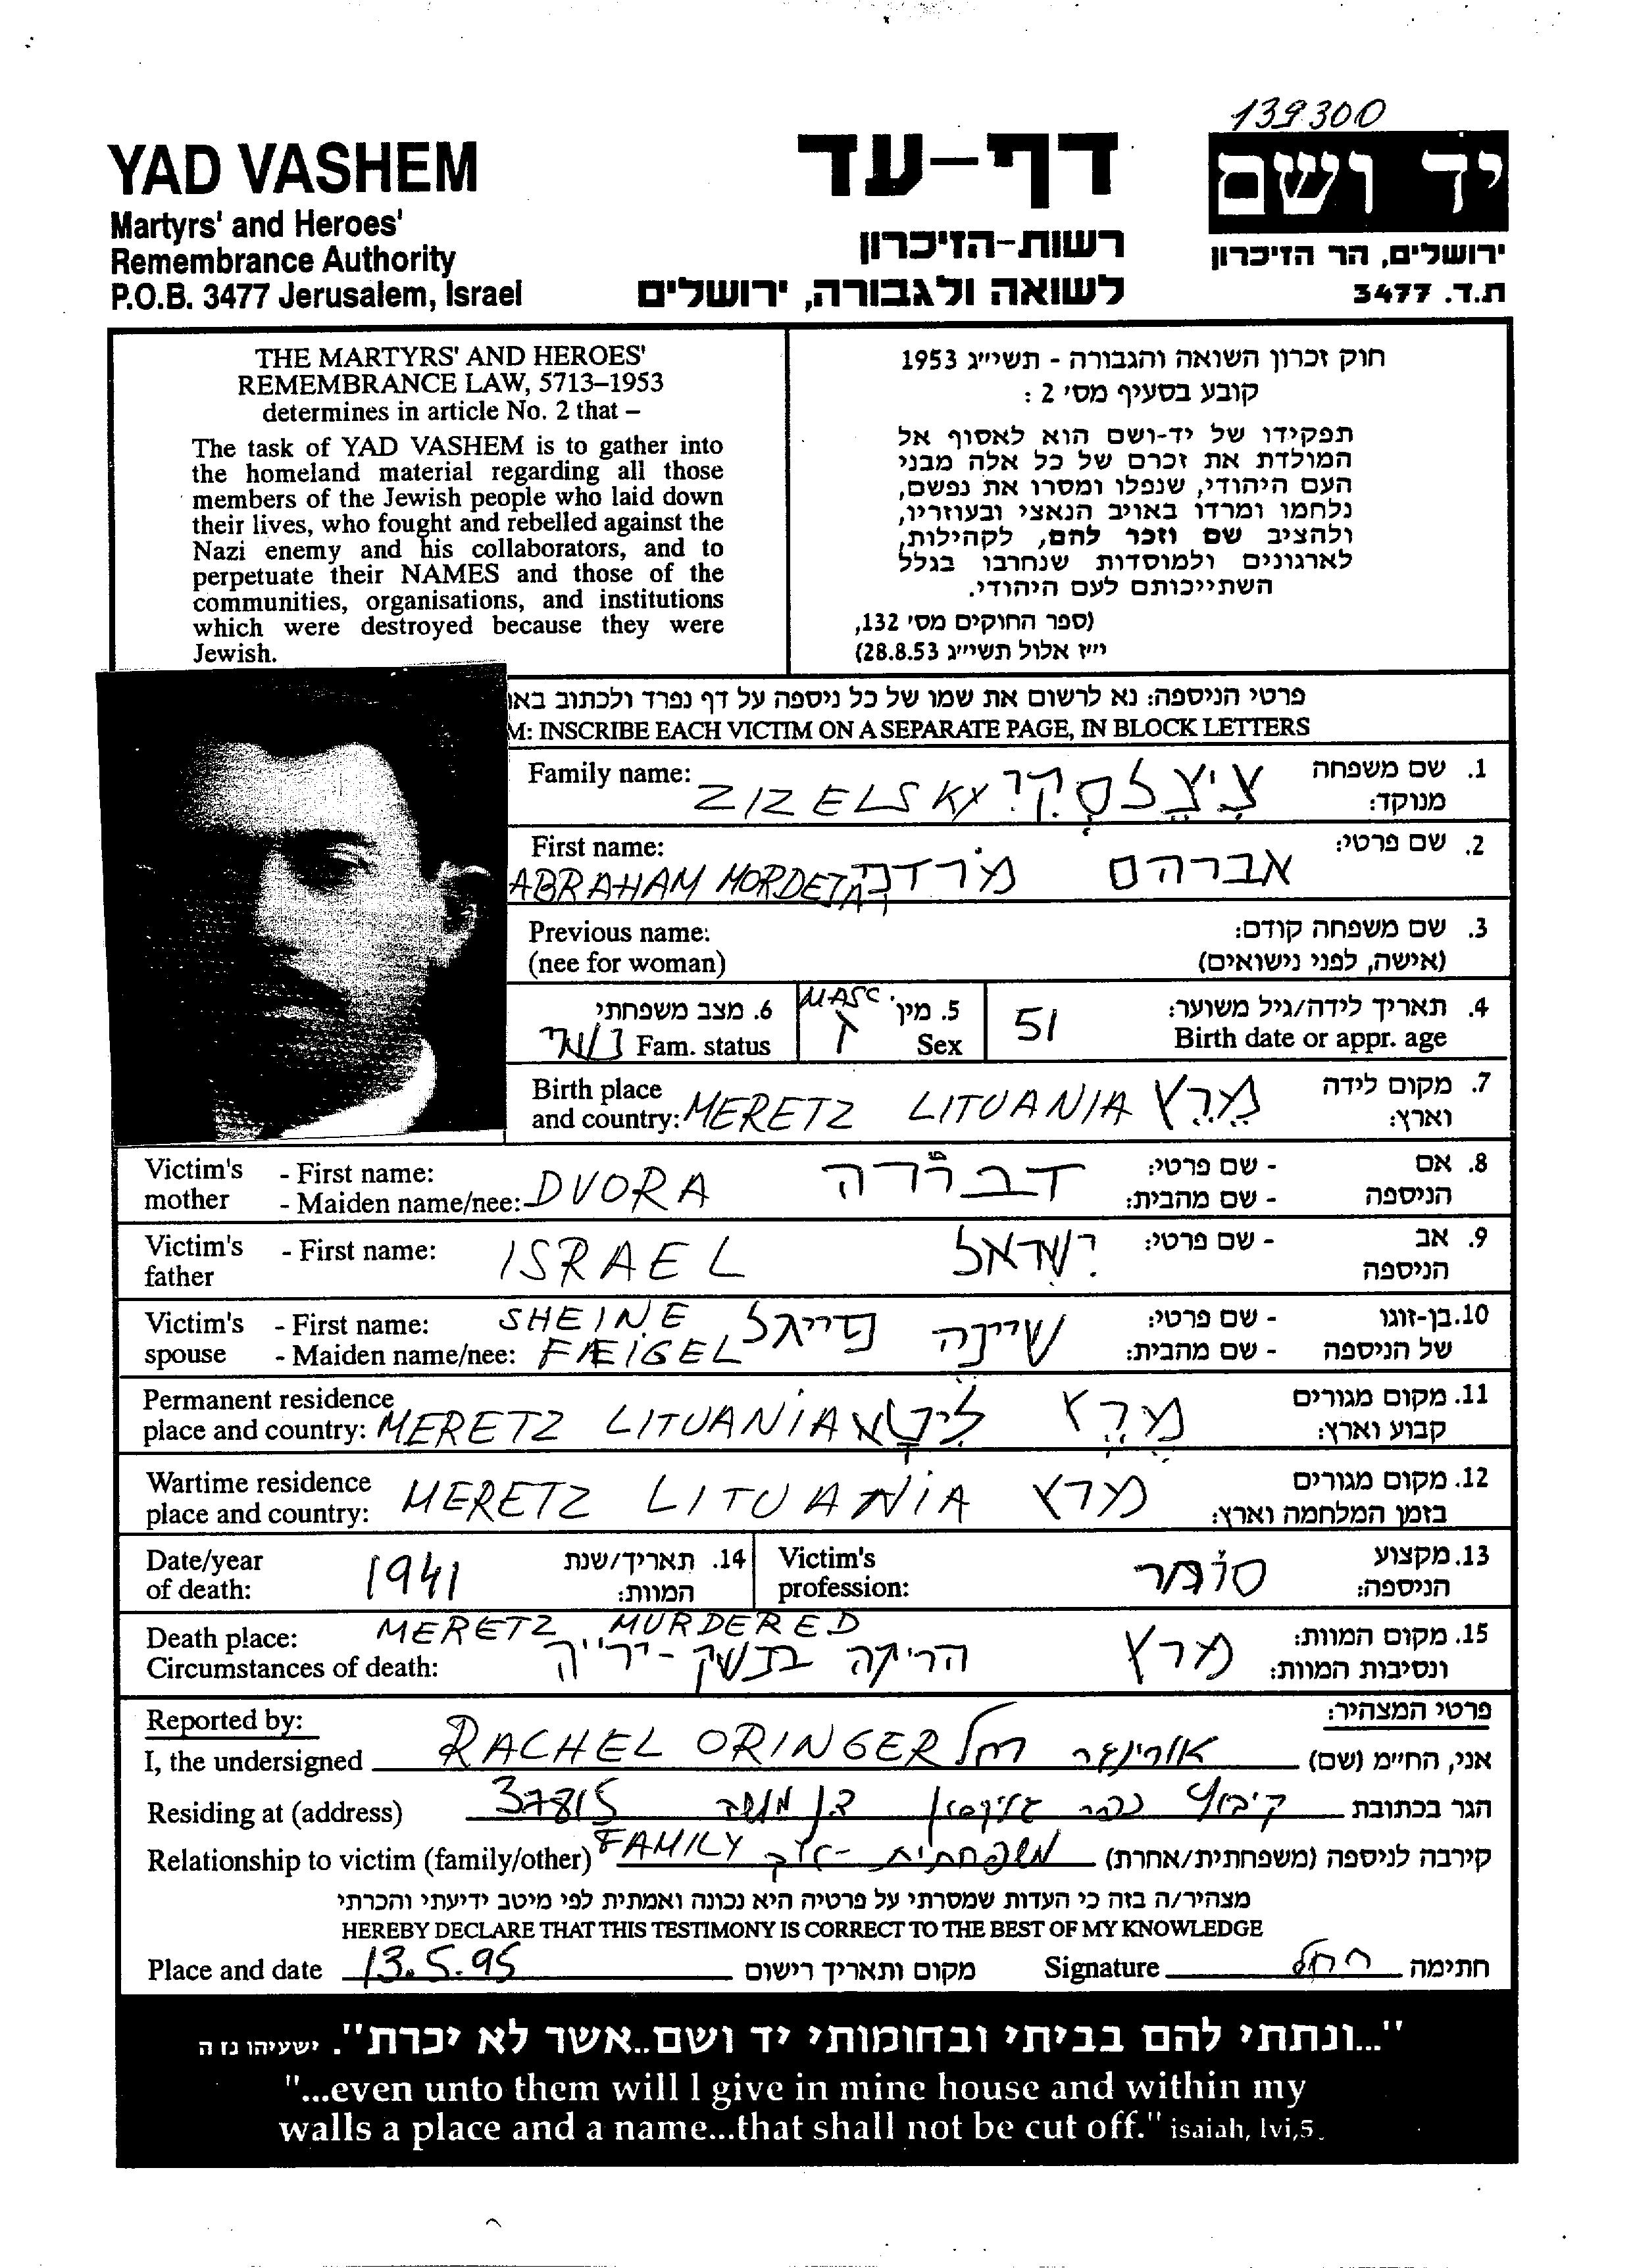 139300
YAD VASHEM
Martyrs' and Heroes'
Remembrance Authority
P.O.B. 3477 Jerusalem, Israel
דף-עד
רשות-הזיכרון
לשואה ולגבורה, ירושלים
יד ושם
ירושלים, הר הזיכרון
ת.ד. 3477
THE MARTYRS' AND HEROES'
REMEMBRANCE LAW, 5713–1953
determines in article No. 2 that –
The task of YAD VASHEM is to gather into
the homeland material regarding all those
members of the Jewish people who laid down
their lives, who fought and rebelled against the
Nazi enemy and his collaborators, and to
perpetuate their NAMES and those of the
communities, organisations, and institutions
which were destroyed because they were
Jewish.
חוק זכרון השואה והגבורה - תשי״ג 1953
קובע בסעיף מס' 2 :
תפקידו של יד-ושם הוא לאסוף אל
המולדת את זכרם של כל אלה מבני
העם היהודי, שנפלו ומסרו את נפשם,
נלחמו ומרדו באויב הנאצי ובעוזריו,
ולהציב שם וזכר להם, לקהילות,
לארגונים ולמוסדות שנחרבו בגלל
השתייכותם לעם היהודי.
(ספר החוקים מס' 132,
י״ז אלול תשי״ג 28.8.53)
פרטי הניספה: נא לרשום את שמו של כל ניספה על דף נפרד ולכתוב באו
M: INSCRIBE EACH VICTIM ON A SEPARATE PAGE, IN BLOCK LETTERS
Family name: ZIZELSKY צִיצֶלסְקִי 1. שם משפחה
מנוקד:
First name: ABRAHAM MORDEJA אברהם מרדכי 2. שם פרטי:
Previous name: 3. שם משפחה קודם:
(nee for woman) (אישה, לפני נישואים)
6. מצב משפחתי נשוי Fam. status
5. מין MASC ז Sex
4. תאריך לידה/גיל משוער: 51
Birth date or appr. age
Birth place 7. מקום לידה
and country: MERETZ LITUANIA מֶרֶץ וארץ:
Victim's - First name: DVORA דבורה - שם פרטי: 8. אם
mother - Maiden name/nee: - שם מהבית: הניספה
Victim's - First name: ISRAEL ישראל - שם פרטי: 9. אב
father הניספה
Victim's - First name: SHEINE שיינה פייגל - שם פרטי: 10. בן-זוגו
spouse - Maiden name/nee: FÆIGEL - שם מהבית: של הניספה
Permanent residence 11. מקום מגורים
place and country: MERETZ LITUANIA מֶרֶץ לִיטָא קבוע וארץ:
Wartime residence 12. מקום מגורים
place and country: MERETZ LITUANIA מרץ בזמן המלחמה וארץ:
Date/year 1941 14. תאריך/שנת
of death: המוות:
Victim's סוחר 13. מקצוע
profession: הניספה:
Death place: MERETZ MURDERED מרץ 15. מקום המוות:
Circumstances of death: בנשק-ירייה ונסיבות המוות:
Reported by: פרטי המצהיר:
I, the undersigned RACHEL ORINGER אורינגר רחל אני, החיימ (שם)
Residing at (address) קיבוץ כפר גליקסון 37815 הגר בכתובת
Relationship to victim (family/other) FAMILY משפחתית קירבה לניספה (משפחתית/אחרת)
מצהיר/ה בזה כי העדות שמסרתי על פרטיה היא נכונה ואמתית לפי מיטב ידיעתי והכרתי
HEREBY DECLARE THAT THIS TESTIMONY IS CORRECT TO THE BEST OF MY KNOWLEDGE
Place and date 13.5.95 מקום ותאריך רישום Signature רחל חתימה
"...ונתתי להם בביתי ובחומותי יד ושם..אשר לא יכרת". ישעיהו נז ה
"...even unto them will I give in mine house and within my
walls a place and a name...that shall not be cut off." isaiah, lvi,5.